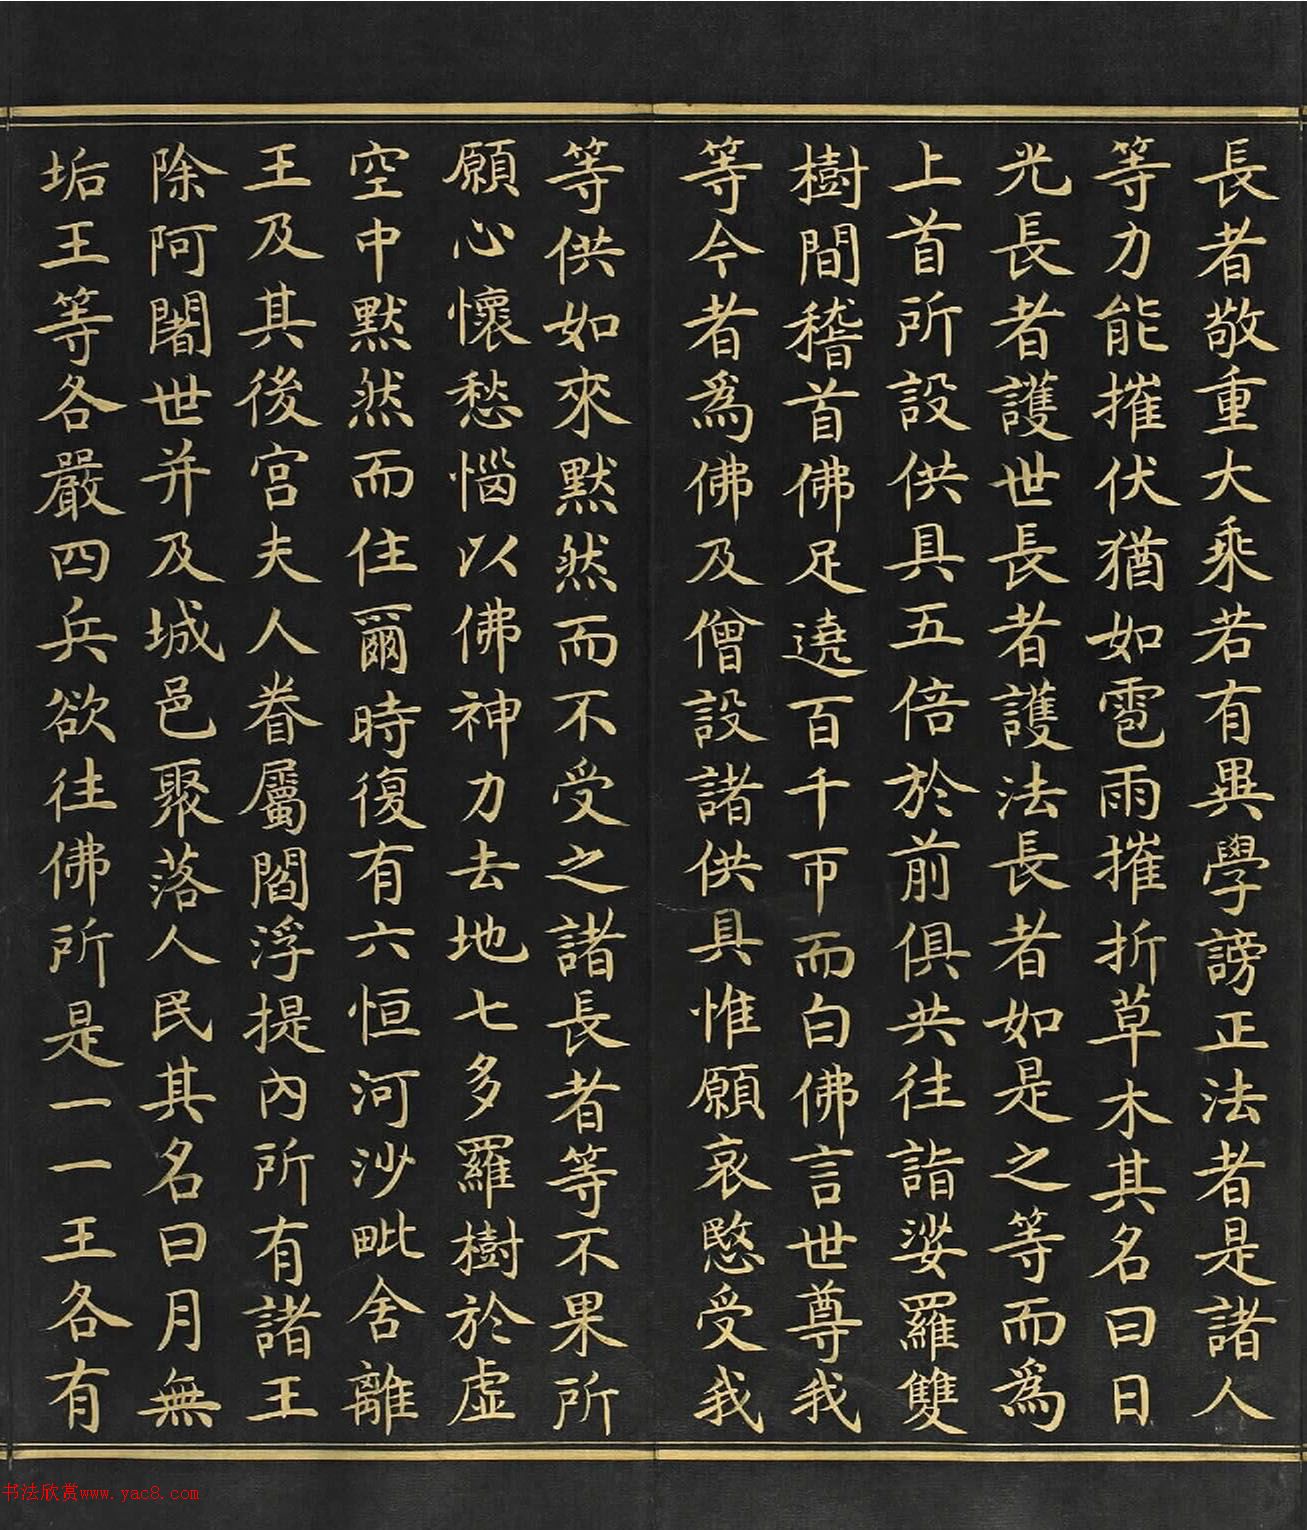 長者敬重大乘若有異學謗正法者是諸人
等力能摧伏猶如雹雨摧折草木其名曰日
光長者護世長者護法長者如是之等而為
上首所設供具五倍於前俱共往詣娑羅雙
樹間稽首佛足遶百千帀而白佛言世尊我
等今者為佛及僧設諸供具惟願哀愍受我
等供如來默然而不受之諸長者等不果所
願心懷愁惱以佛神力去地七多羅樹於虛
空中默然而住爾時復有六恒河沙毗舍離
王及其後宮夫人眷屬閻浮提內所有諸王
除阿闍世并及城邑聚落人民其名曰月無
垢王等各嚴四兵欲往佛所是一一王各有
书法欣赏www.yac8.com